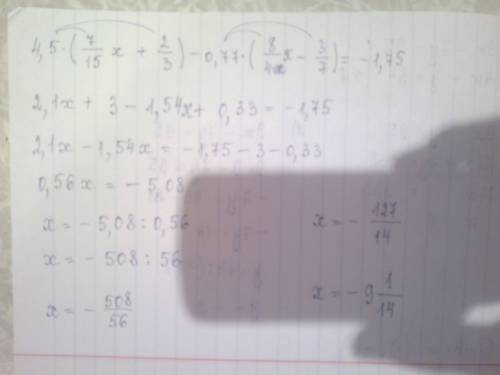 4,5·(7/15 x + 2/3) − 0,77·(8/4 x − 3/7) = −1,75
2,1x + 3 − 1,54x + 0,33 = −1,75
2,1x − 1,54x = −1,75 − 3 − 0,33
0,56x = − 5,08
x = − 5,08 : 0,56
x = − 508 : 56
x = − 508/56
x = − 127/14
x = − 9 1/14